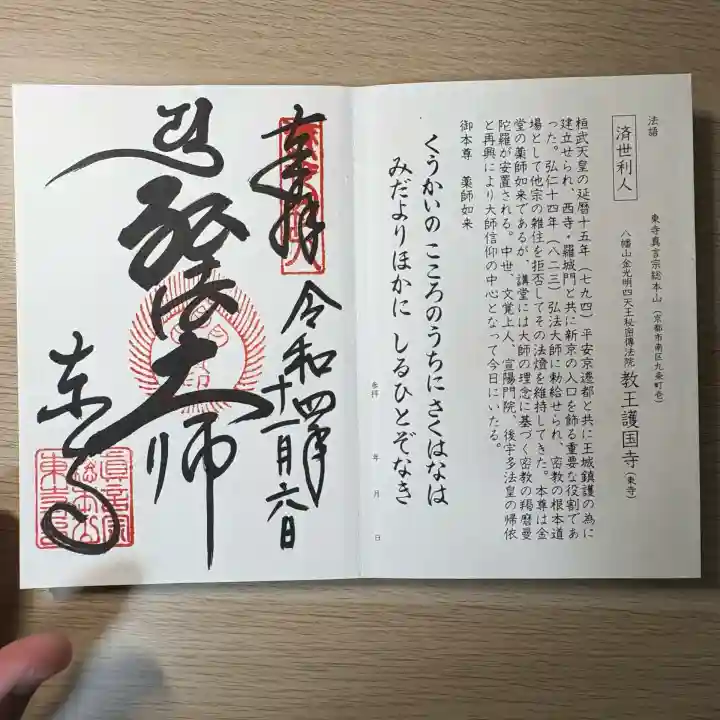 法語
済世利人
東寺真言宗総本山 (京都市南区九条町壱)
八幡山金光明四天王秘密傳法院 教王護国寺 (東寺)
桓武天皇の延暦十五年(七九四)平安京遷都と共に王城鎮護の為に
建立せられ、西寺・羅城門と共に新京の入口を飾る重要な役割であ
った。弘仁十四年(八二三)弘法大師に勅給せられ、密教の根本道
場として他宗の雑住を拒否してその法燈を維持してきた。本尊は金
堂の薬師如来であるが、講堂には大師の理念に基づく密教の羯磨曼
陀羅が安置される。中世、文覚上人、宣陽門院、後宇多法皇の帰依
と再興により大師信仰の中心となって今日にいたる。
御本尊 薬師如来
くうかいの こころのうちに さくはなは
みだよりほかに しるひとぞなき
参拝 年 月 日
奉拝
令和四年
十一月六日
弘法大師
東寺